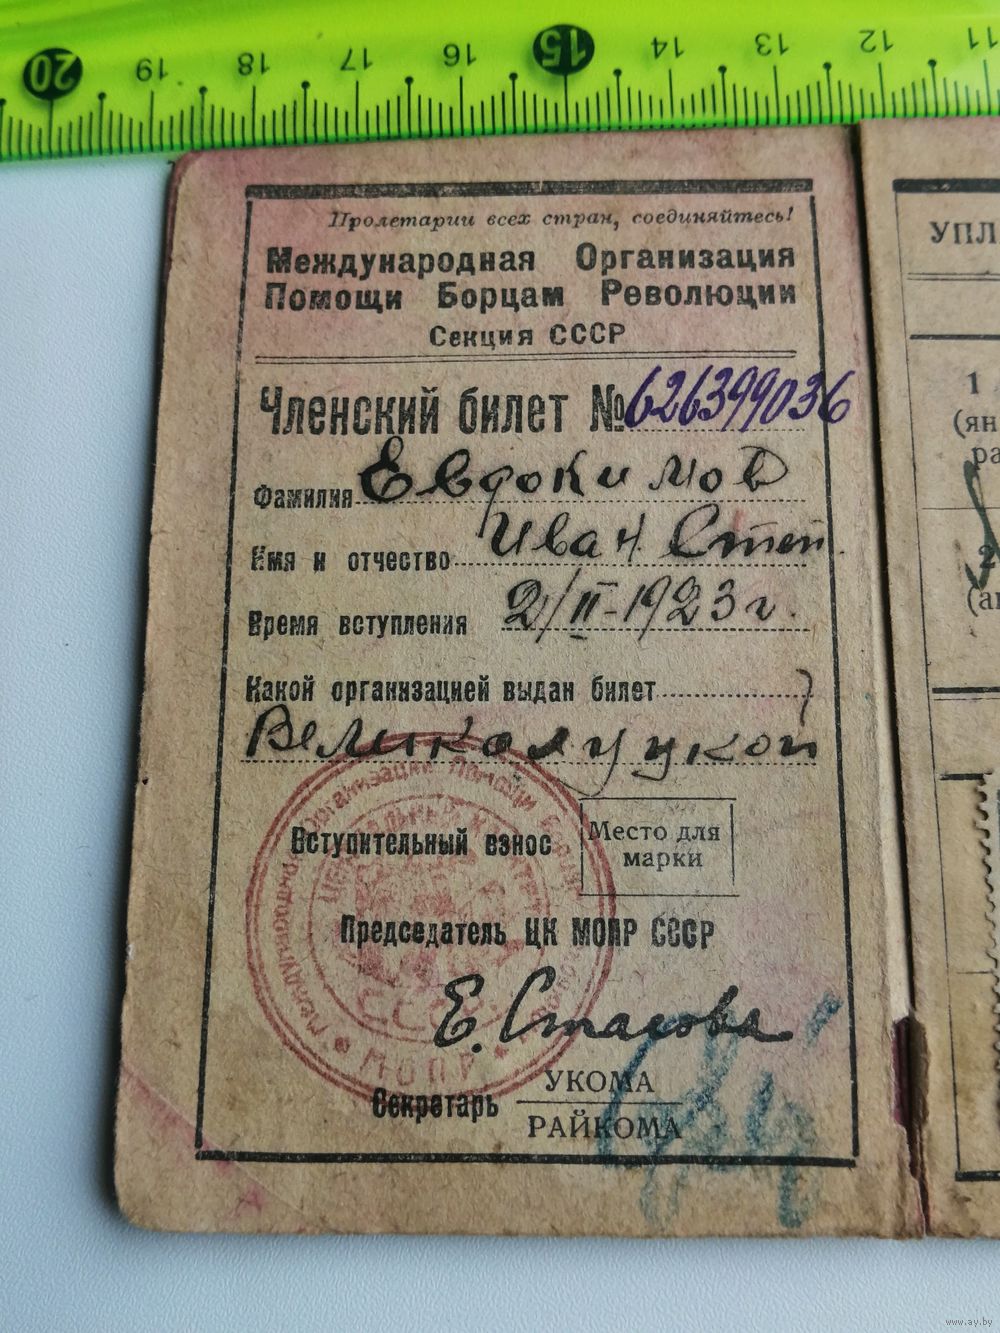 20 19 18 17 16 15 14 13 12 11
Пролетарии всех стран, соединяйтесь!
Международная Организация
Помощи Борцам Революции
Секция СССР
Членский билет № 626399036
Фамилия Евдокимов
Имя и отчество Иван Степ.
Время вступления 2/II-1923 г.
Какой организацией выдан билет
Великолуцкой
Вступительный взнос
Место для
марки
Председатель ЦК МОПР СССР
Е. Стасова
Секретарь
УКОМА
РАЙКОМА
Международная Организация Помощи
СССР
МОПР
УПЛ
1
(ян
ра
2
(ап
www.ay.by